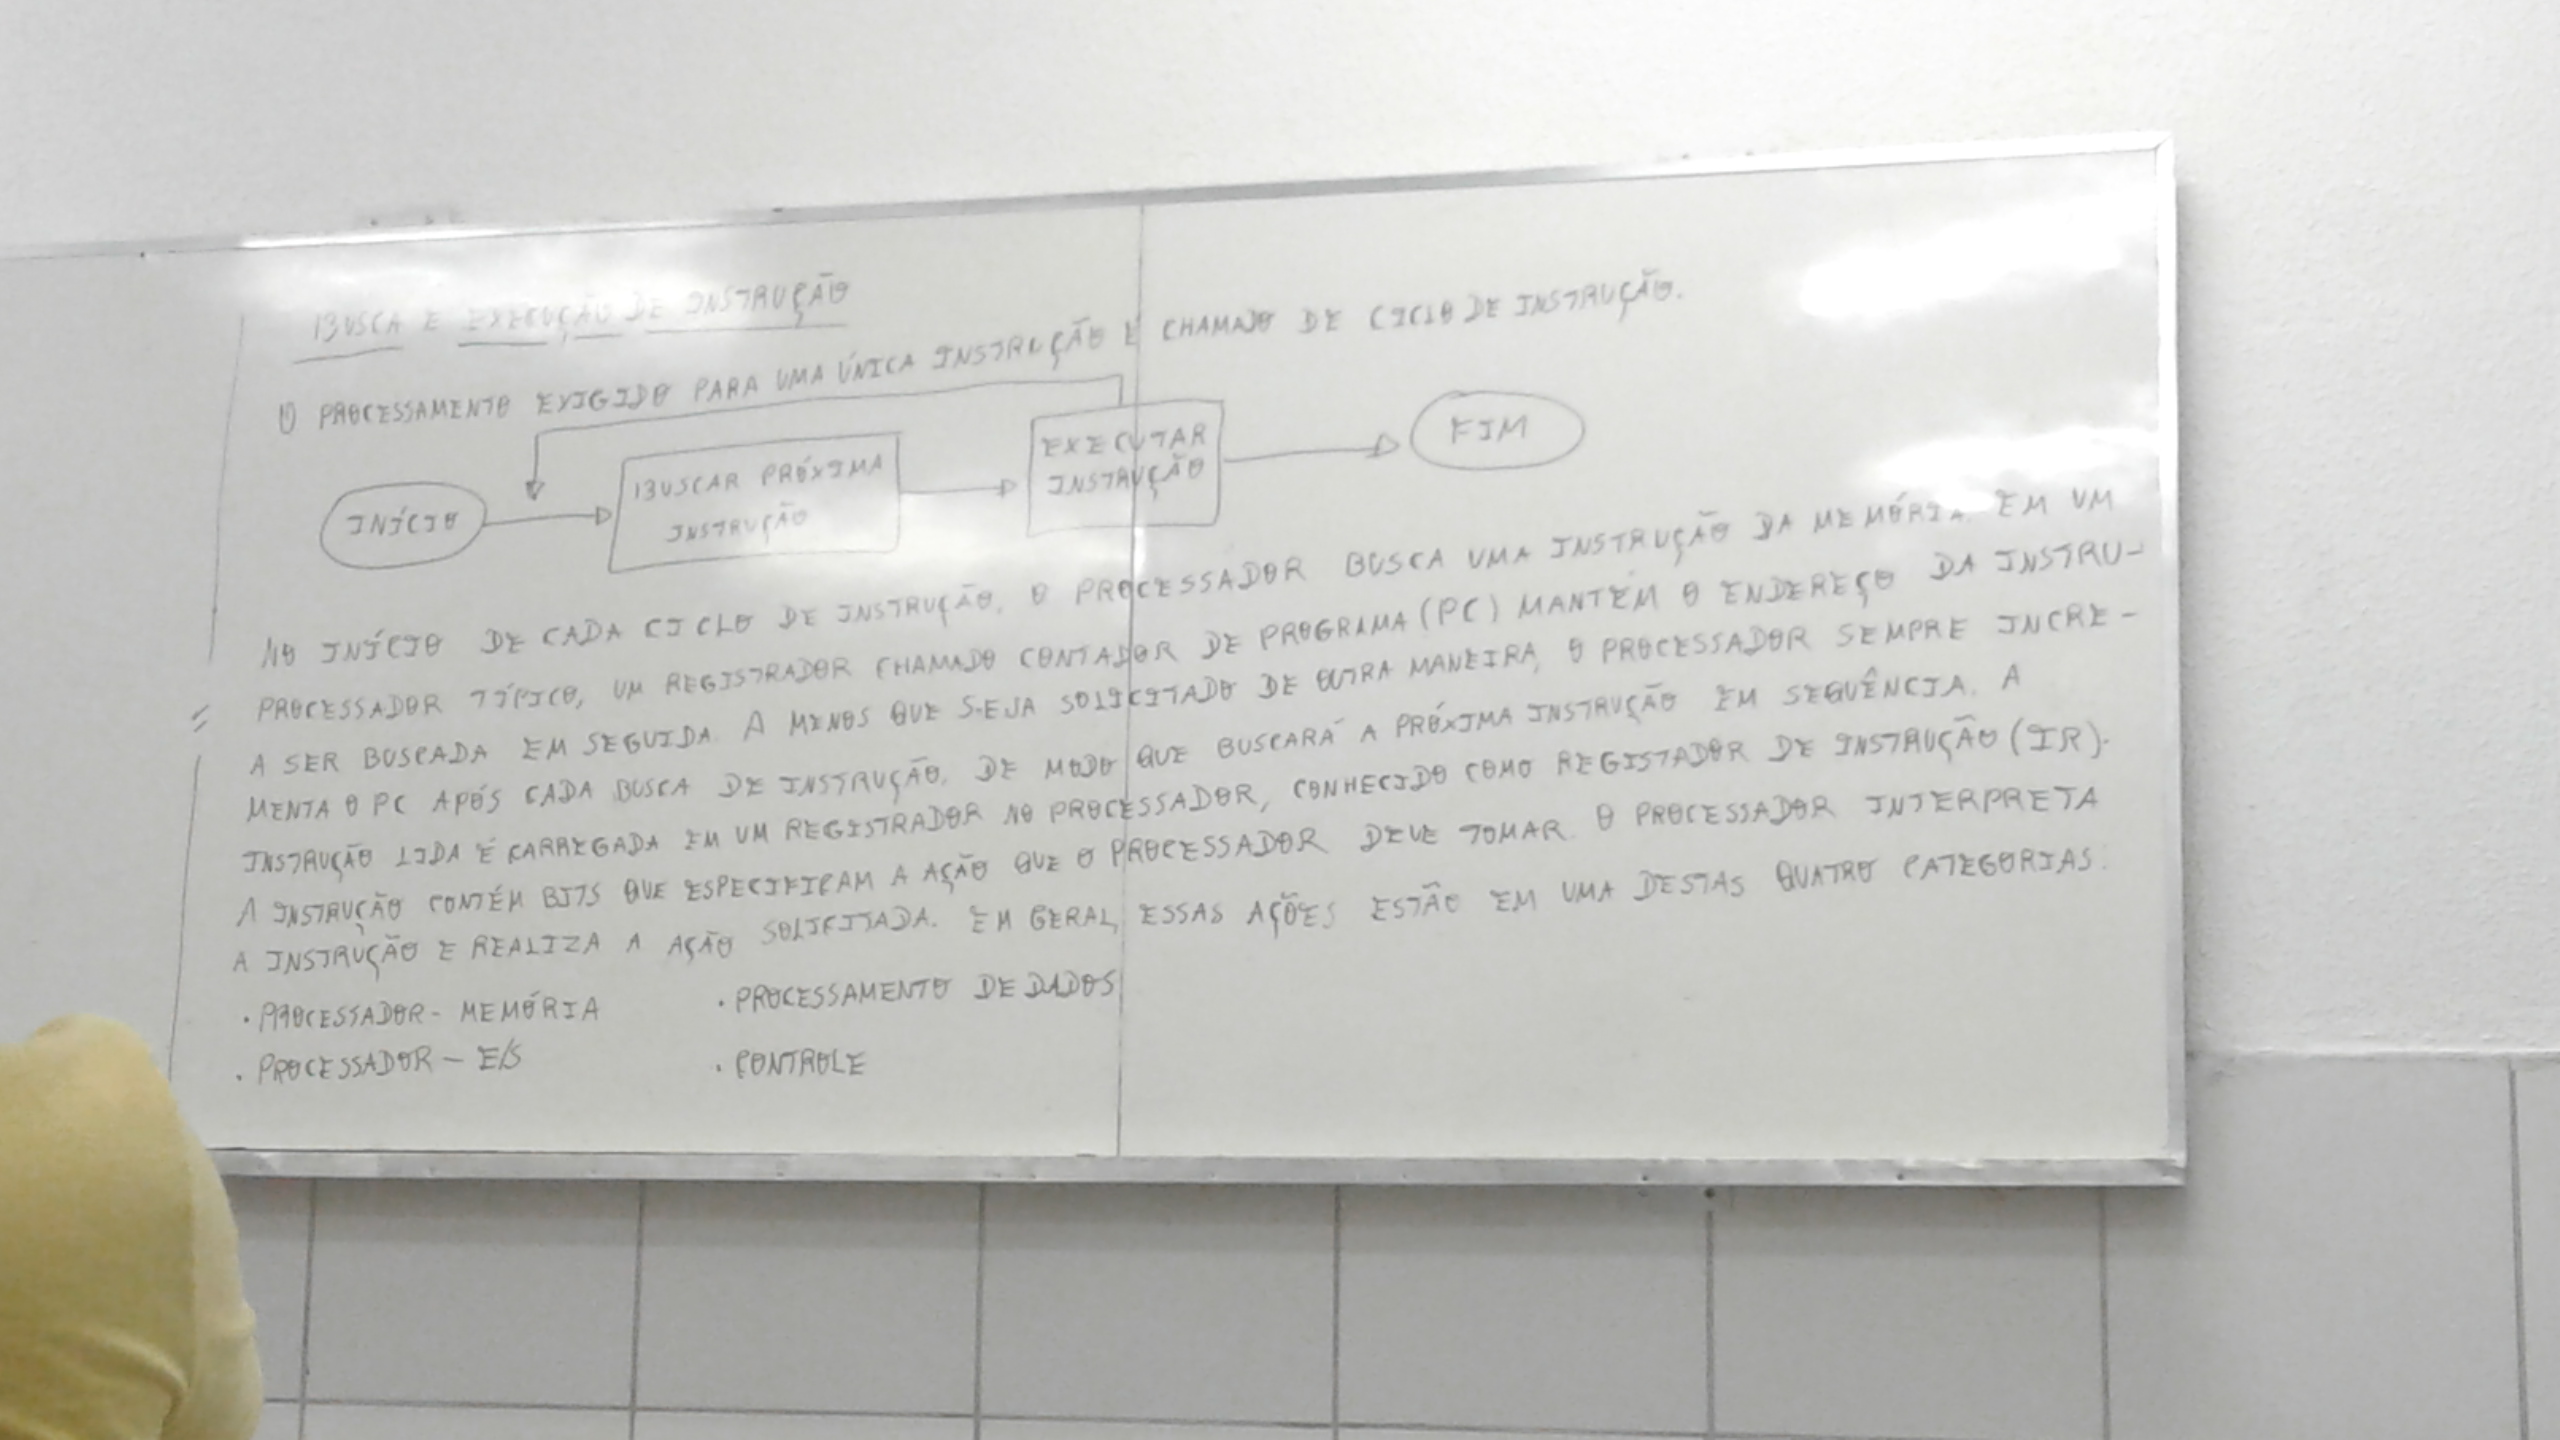 BUSCA E EXECUÇÃO DE INSTRUÇÃO
O PROCESSAMENTO EXIGIDO PARA UMA ÚNICA INSTRUÇÃO É CHAMADO DE CICLO DE INSTRUÇÃO.
INÍCIO
BUSCAR PRÓXIMA
INSTRUÇÃO
EXECUTAR
INSTRUÇÃO
FIM
NO INÍCIO DE CADA CICLO DE INSTRUÇÃO, O PROCESSADOR BUSCA UMA INSTRUÇÃO DA MEMÓRIA. EM UM
PROCESSADOR TÍPICO, UM REGISTRADOR CHAMADO CONTADOR DE PROGRAMA (PC) MANTÉM O ENDEREÇO DA INSTRU-
A SER BUSCADA EM SEGUIDA. A MENOS QUE SEJA SOLICITADO DE OUTRA MANEIRA, O PROCESSADOR SEMPRE INCRE-
MENTA O PC APÓS CADA BUSCA DE INSTRUÇÃO, DE MODO QUE BUSCARÁ A PRÓXIMA INSTRUÇÃO EM SEQUÊNCIA. A
INSTRUÇÃO LIDA É CARREGADA EM UM REGISTRADOR NO PROCESSADOR, CONHECIDO COMO REGISTADOR DE INSTRUÇÃO (IR).
A INSTRUÇÃO CONTÉM BITS QUE ESPECIFICAM A AÇÃO QUE O PROCESSADOR DEVE TOMAR. O PROCESSADOR INTERPRETA
A INSTRUÇÃO E REALIZA A AÇÃO SOLICITADA. EM GERAL, ESSAS AÇÕES ESTÃO EM UMA DESTAS QUATRO CATEGORIAS:
· PROCESSADOR - MEMÓRIA · PROCESSAMENTO DE DADOS
· PROCESSADOR - E/S · CONTROLE